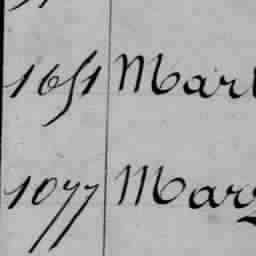 1651 Mart
1077 Mary